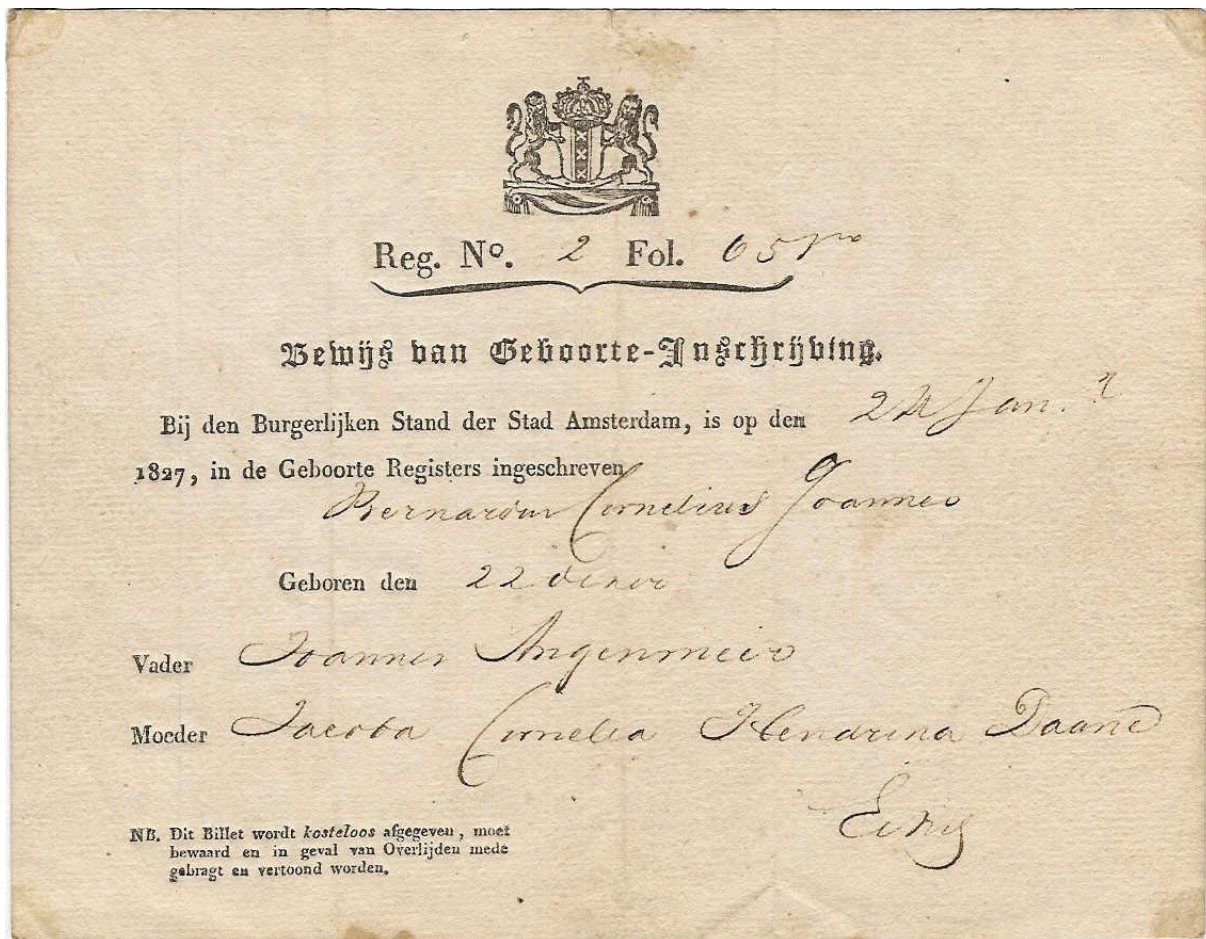 Reg. No. 2 Fol. 65 ro
Bewijs van Geboorte-Inschrijving.
Bij den Burgerlijken Stand der Stad Amsterdam, is op den 24 Jan.
1827, in de Geboorte Registers ingeschreven
Bernardus Cornelius Joannes
Geboren den 22 dezer
Vader Joannes Angenmeer
Moeder Jacoba Cornelia Hendrina Daane
NB. Dit Billet wordt kosteloos afgegeven, moet
bewaard en in geval van Overlijden mede
gebragt en vertoond worden.